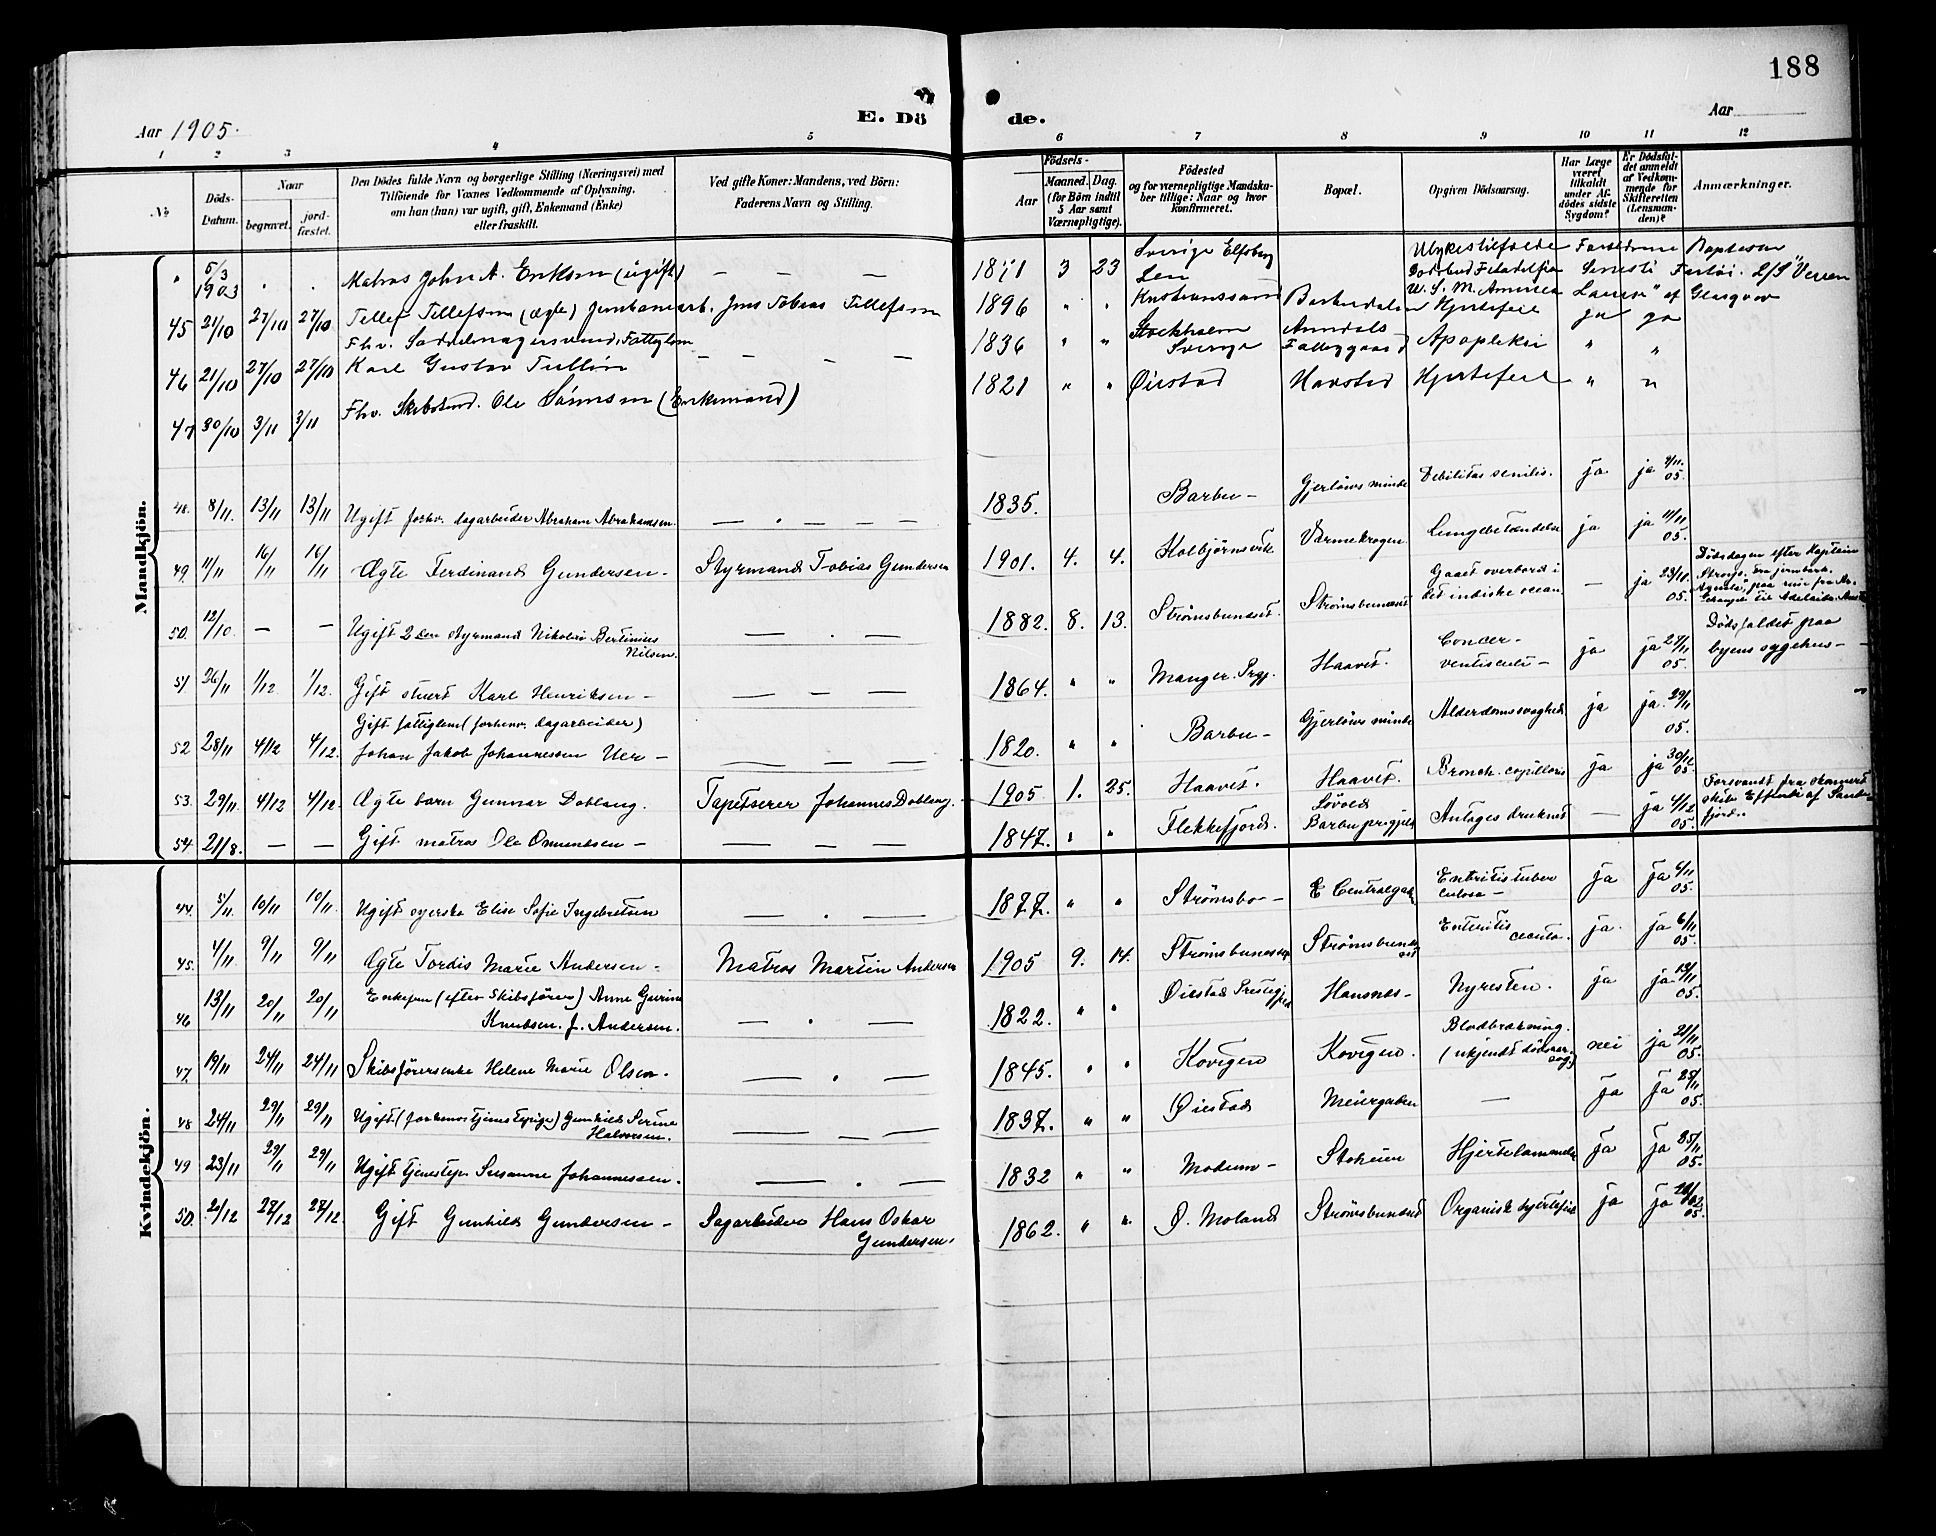 188
Aar 1905.
E. Dö de.
Aar
1 2 3 4 5 6 7 8 9 10 11 12
№
Döds-Datum.
Naar
begravet.
jord-fæstet.
Den Dödes fulde Navn og borgerlige Stilling (Næringsvei) med
Tilföiende for Voxnes Vedkommende af Oplysning,
om han (hun) var ugift, gift, Enkemand (Enke)
eller fraskilt.
Ved gifte Koner: Mandens, ved Börn:
Faderens Navn og Stilling.
Födsels-
Aar
Maaned. Dag.
(for Börn indtil
5 Aar samt
Værnepligtige).
Födested
og for værnepligtige Mandska-
ber tillige: Naar og hvor
Konfirmeret.
Bopæl.
Opgiven Dödsaarsag.
Har Læge
været
tilkaldt
under Af-
dödes sidste
Sygdom?
Er Dödsfal-
det anmeldt
af Vedkom-
mende for
Skifteretten
(Lensman-
den)?
Anmærkninger.
Mandkjön.
" 5/3 1903 . . Matros John A. Eriksen (ugift) — — — 1871 3 23 Sverige Elfsborg Len
45 21/10 27/10 27/10 Tellef Tellefsen (ægte) Jernbanearb. Jens Tobias Tellefsen 1896 " . Kristianssand Hjertefeil ja ja Glasgow
46 21/10 27/10 27/10 Fhv. Saddelmagersvend, Fattiglem
Karl Gustav Tullin — — — 1836 " " Stockholm Sverige Arendals Fattiggaard Apopleksi " "
47 30/10 3/11 3/11 Fhv. Skibstmd. Ole Sørensen (Enkemand) 1821 " " Øiestad Havsted Hjertefeil " "
48. 8/11. 13/11 13/11 Ugift forhv. dagarbeider Abraham Abrahamsen. — . — — — 1835. Barbu — Gjerløvs minde Debilitas senilis. ja ja 9/11. 05.
49. 11/11 16/11 16/11 Ægte Ferdinand Gundersen — Styrmand Tobias Gundersen 1901. 4. 4. Kolbjørnsvik Varmekrogen Lungebetændelse ja ja 11/11 05.
50. 12/10. — — Ugift 2den styrmand Nikolai Bertinius
Nilsen. — . — 1882. 8. 13. Strømsbunæst. Strømsbunæset Gaaet overbord i
det indiske ocean — ja 23/11. 05. Dødsdagen efter Kaptein
51 26/11 1/12 1/12. Gift stuert Karl Henriksen — — — — 1864. " " Manger Prgj. Haavet. Cancer-
ventriculi — ja ja 27/11 05. Dødsfaldet paa
byens sygehus —
52 28/11 4/12 4/12. Gift fattiglem (forhenv. dagarbeider)
Johan Jakob Johannessen Uer — — — — 1820. " " Barbu — Gjerløvs minde Alderdomssvaghed ja ja. 29/11 05.
53. 29/11. 4/12 4/12. Ægte barn Gunnar Doblaug. Tapetserer Johannes Doblaug. 1905 1. 25. Haavet. Haavet. Bronch. capillaris ja ja 30/11 05.
54. 21/8. — — Gift matros Ole Omundsen — — — — 1847. " " Flekkefjord. Løvold
Barbu prgjeld Antages druknet — ja 4/12 05. Forsvandt fra skonnert
skib Effendi af Sande-
fjord..
Kvindekjön.
44. 5/11. 10/11 10/11. Ugift syerske Elise Sofie Ingebretsen — . — 1877. " " Strømsbo — E Centralgad Entritis tuber
culosa — ja ja 6/11 05.
45. 4/11. 9/11 9/11. Ægte Tordis Marie Andersen — Matros Martin Andersen 1905 9. 14. Strømsbunæset Strømsbunæset Enteritis
acuta. ja. ja 6/11 05.
46 13/11 20/11 20/11 Enkefru (efter Skibsfører) Anne Gurine
Knudsen f. Andersen. — . — 1822. " " Øiestad Prestegjeld Hansnes — Nyresten. ja ja 13/11 05.
47. 19/11 24/11 24/11 Skibsførerenke Helene Marie Olsen. — . — 1845. " " Kovigen Kovigen. Blodbrækning.
(ukjendt dødsaarsag) nei ja 21/11 05.
48 24/11 29/11 29/11 Ugift (forhenv. tjenestepige) Gunhild Serine
Halvorsen. — — — 1837. " " Øiestad Meiergaden — ja ja 25/11 05.
49 23/11 29/11 29/11 Ugift tjenestepi Susanne Johannessen. — . — 1832 " " Modum — Stoheien Hjertelammelse ja ja 25/11 05.
50. 21/12 27/12 27/12. Gift Gunhild Gundersen — Sagarbeider Hans Oskar
Gundersen. 1862. " " Ø. Moland Strømsbunæset Organisk hjertefeil ja ja 05.